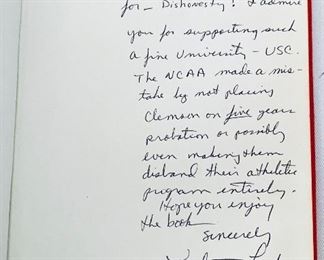 for - Dishonesty! I admire
you for supporting such
a fine University - USC.
The NCAA made a mis-
take by not placing
Clemson on five years
probation or possibly
even making them
disband their athletic
program entirely.
Hope you enjoy
the book
Sincerely